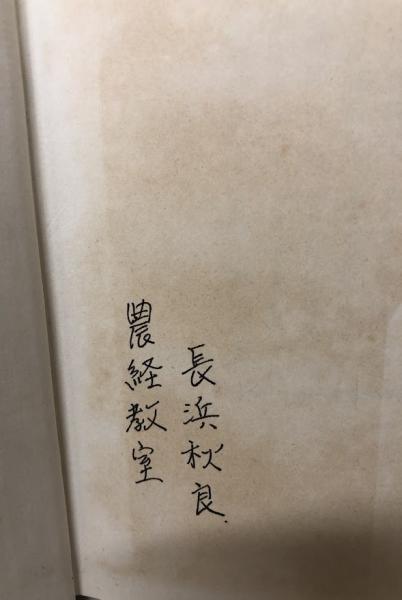 長浜秋良
農経教室